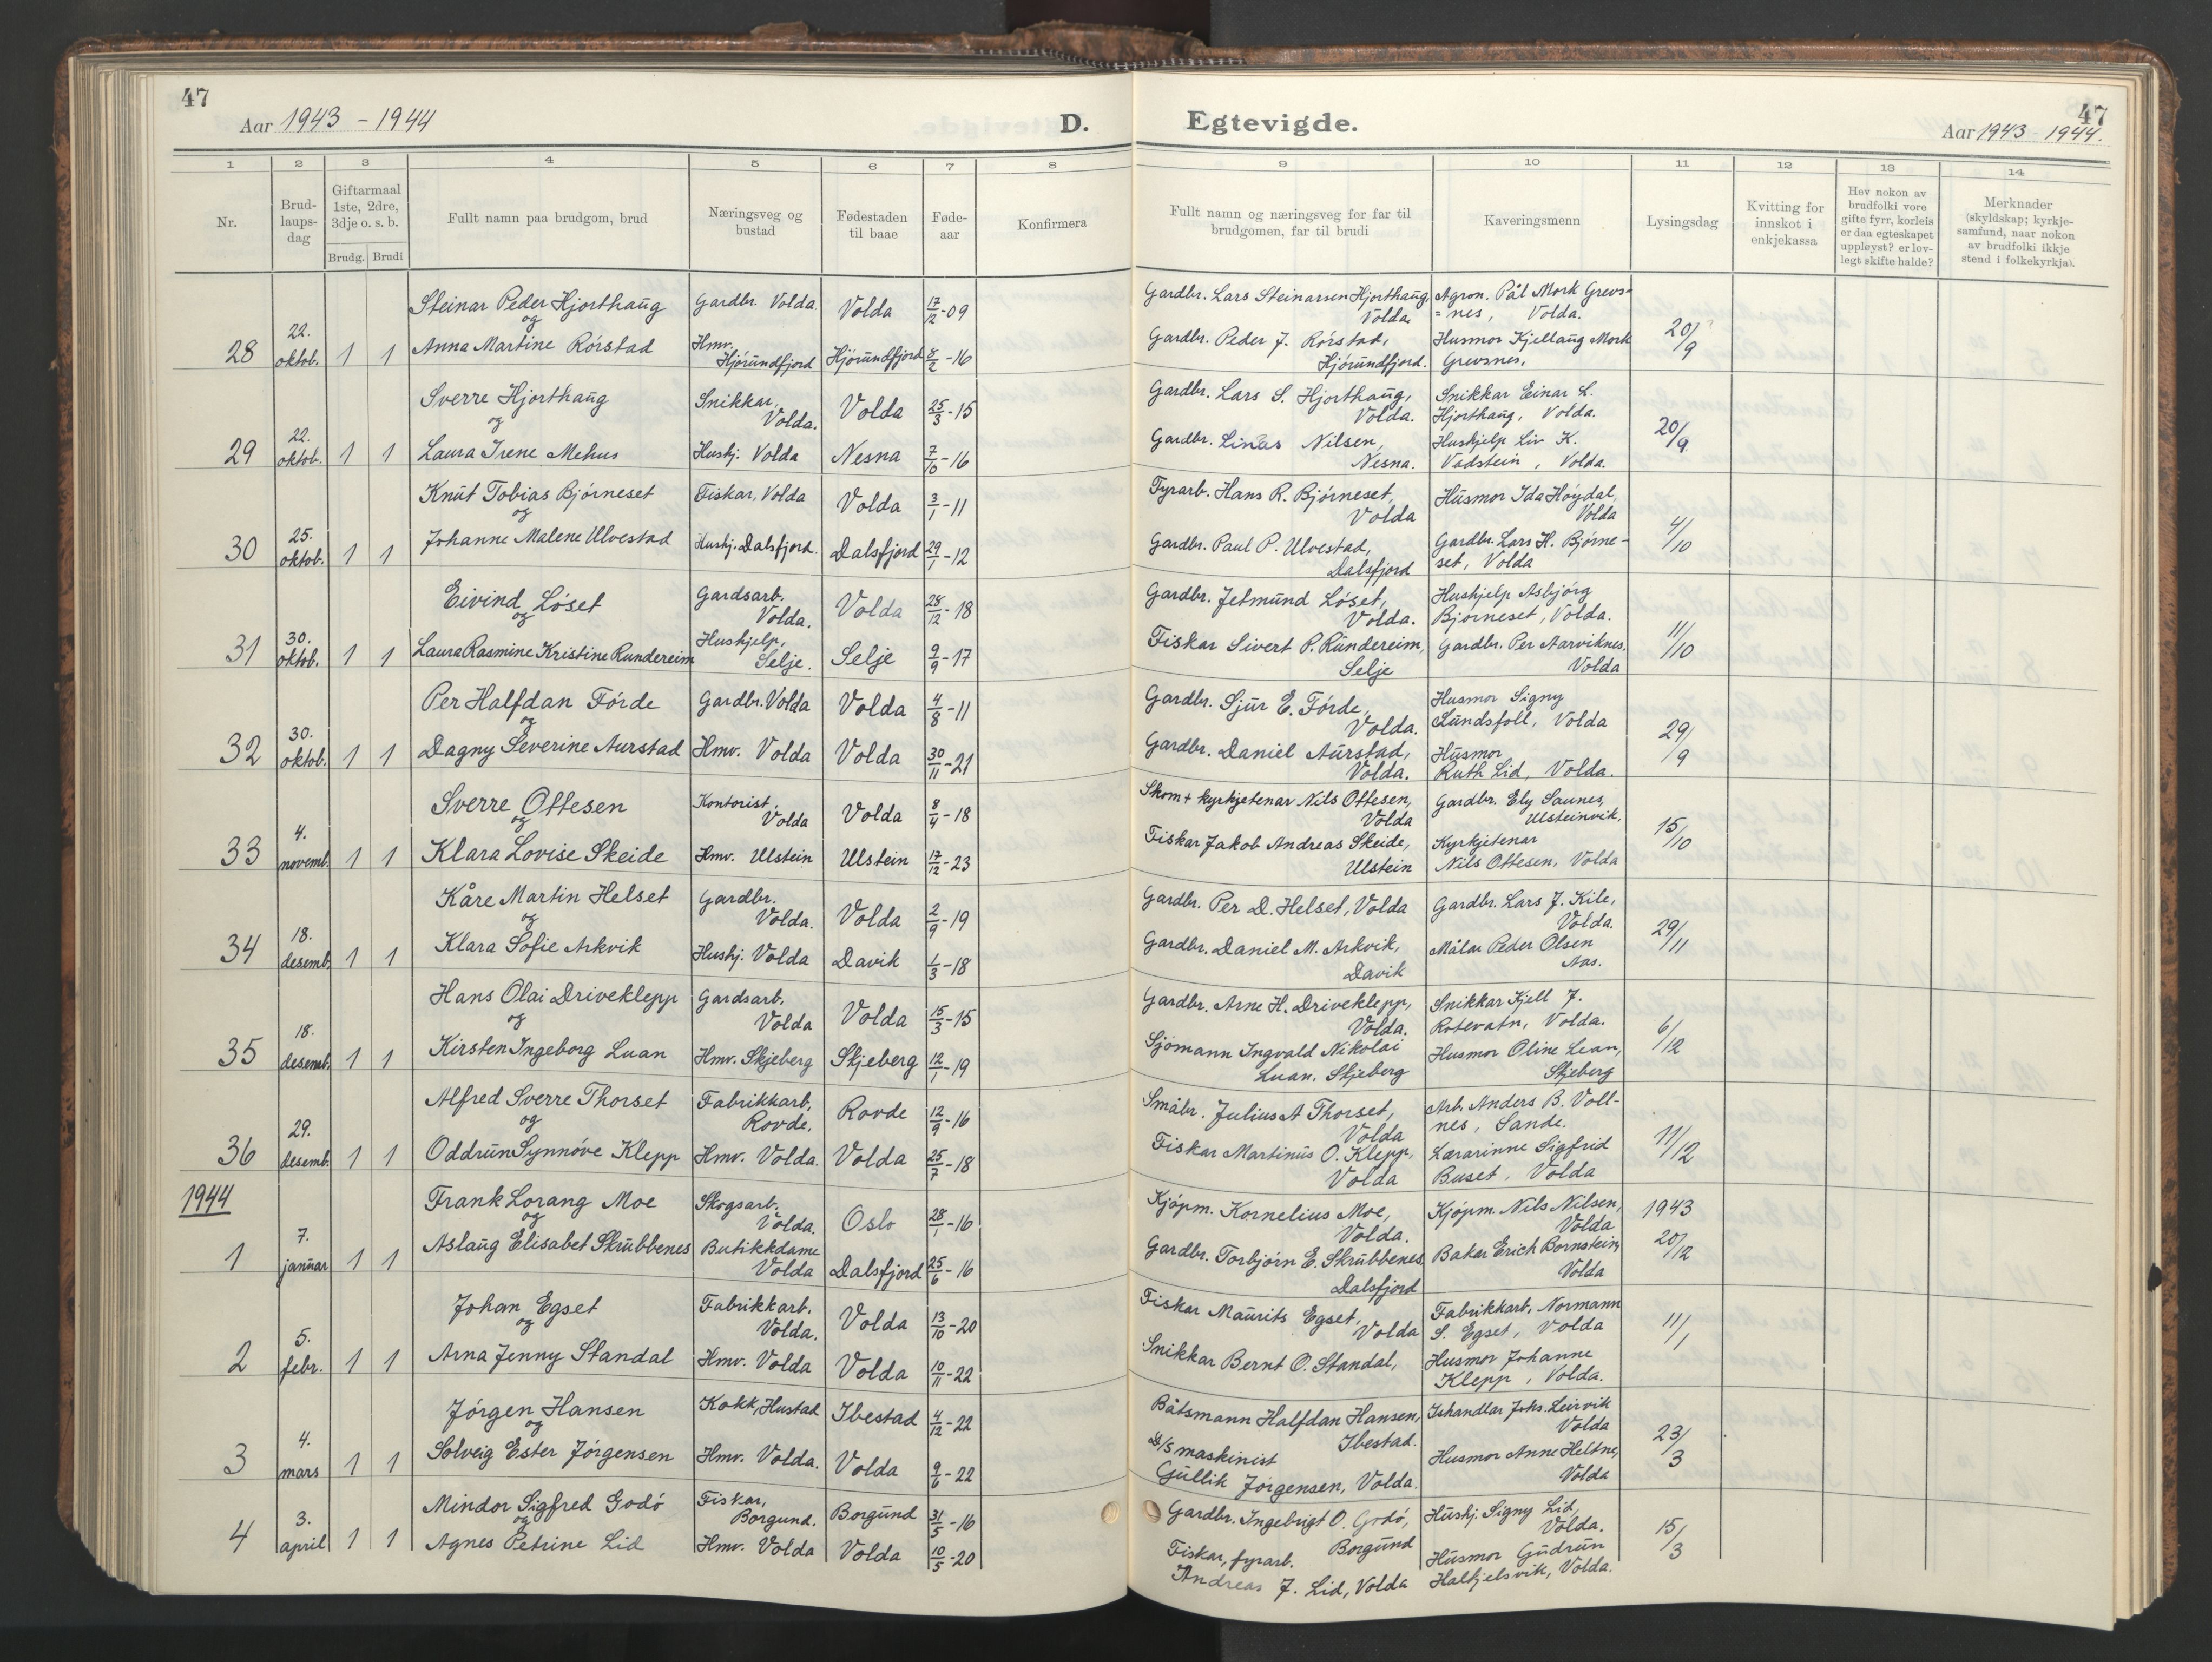 47
Aar 1943 - 1944
D.
1 2 3 4 5 6 7 8
Nr.
Brud-
laups-
dag
Giftarmaal
1ste, 2dre,
3dje o. s. b.
Brudg. Brudi
Fullt namn paa brudgom, brud
Næringsveg og
bustad
Fødestaden
til baae
Føde-
aar
Konfirmera
Steinar Peder Hjorthaug Gardbr. Volda. Volda 17/12-09
og
28 22. oktob. 1 1 Anna Martine Rørstad Hmv. Hjørundfjord Hjørundfjord /2-16
Sverre Hjorthaug Snikkar, Volda. Volda 25/3-15
og
29 22. oktob. 1 1 Laura Irene Mehus Hushj. Volda Nesna 7/10-16
Knut Tobias Bjørneset Fiskar, Volda Volda 3/1-11
og
30 25. oktob. 1 1 Johanne Malene Ulvestad Hushj. Dalsfjord. Dalsfjord 29/1-12
Eivind Løset Gardsarb. Volda. Volda 28/12-18
og
31 30. oktob. 1 1 Laura Rasmine Kristine Rundereim Hushjelp, Selje. Selje 9/9-17
Per Halfdan Førde Gardbr. Volda Volda 4/8-11
og
32 30. oktob. 1 1 Dagny Severine Aurstad Hmv. Volda Volda 30/11-21
Sverre Ottesen Kontorist, Volda Volda 8/4-18
og
33 4. novemb. 1 1 Klara Lovise Skeide Hmv. Ulstein Ulstein 17/12-23
Kåre Martin Helset Gardbr. Volda. Volda 2/9-19
og
34 18. desemb. 1 1 Klara Sofie Arkvik Hushj. Volda Davik 1/3-18
Hans Olai Driveklepp Gardsarb. Volda Volda 15/3-15
og
35 18. desemb. 1 1 Kirsten Ingeborg Luan Hmv. Skjeberg Skjeberg 12/1-19
Alfred Sverre Thorset Fabrikkarb. Rovde. Rovde 12/9-16
og
36 29. desemb. 1 1 Oddrun Synnøve Klepp Hmv. Volda. Volda 25/7-18
1944
Frank Lorang Moe Skogsarb. Volda. Oslo 28/1-16
og
1 7. januar 1 1 Aslaug Elisabet Skrubbenes Butikkdame Volda Dalsfjord 25/6-16
Johan Egset Fabrikkarb. Volda. Volda 13/10-20
og
2 5. febr. 1 1 Arna Jenny Standal Hmv. Volda Volda 10/11-22
Jørgen Hansen Kokk, Hustad Ibestad 4/12-22
og
3 4. mars 1 1 Solveig Ester Jørgensen Hmv. Volda. Volda 9/6-22
Mindor Sigfred Godø Fiskar, Borgund. Borgund 31/5-16
og
4 3. april 1 1 Agnes Petrine Lid Hmv. Volda Volda 10/5-20
Egtevigde.
47
Aar 1943 - 1944.
9 10 11 12 13 14
Fullt namn og næringsveg for far til
brudgomen, far til brudi
Kaveringsmenn
Lysingsdag
Kvitting for
innskot i
enkjekassa
Hev nokon av
brudfolki vore
gifte fyrr, korleis
er daa egteskapet
uppløyst? er lov-
legt skifte halde?
Merknader
(skyldskap; kyrkje-
samfund, naar nokon
av brudfolki ikkje
stend i folkekyrkja).
Gardbr. Lars Steinarsen Hjorthaug, Agron. Pål Mork Grevs-
Volda. = nes, Volda.
Gardbr. Peder J. Rørstad, Husmor Kjellaug Mork 20/9
Hjørundfjord. Grevsnes,
Gardbr. Lars S. Hjorthaug, Snikkar Einar L.
Volda. Hjorthaug, Volda.
Gardbr. Linas Nilsen, Hushjelp Liv K. 20/9
Nesna. Vadstein, Volda.
Fyrarb. Hans R. Bjørneset, Husmor Ida Høydal,
Volda Volda
Gardbr. Paul P. Ulvestad, Gardbr. Lars H. Bjørne- 4/10
Dalsfjord set, Volda
Gardbr. Jetmund Løset, Hushjelp Asbjørg
Volda. Bjørneset, Volda.
Fiskar Sivert P. Rundereim, Gardbr. Per Aarviknes, 11/10
Selje Volda
Gardbr. Sjur E. Førde, Husmor Signy
Volda. Sundsfoll, Volda
Gardbr. Daniel Aurstad, Husmor 29/9
Volda. Ruth Lid, Volda.
Skom + kyrkjetenar Nils Ottesen, Gardbr. Ely Saunes,
Volda Ulsteinvik.
Fiskar Jakob Andreas Skeide, Kyrkjetenar 15/10
Ulstein Nils Ottesen, Volda
Gardbr. Per D. Helset, Volda Gardbr. Lars J. Kile,
Volda.
Gardbr. Daniel M. Arkvik, Målar Peder Olsen 29/11
Davik Aas.
Gardbr. Arne H. Driveklepp, Snikkar Kjell J.
Volda. Rotevatn, Volda.
Sjømann Ingvald Nikolai Husmor Oline Lean, 6/12
Luan. Skjeberg Skjeberg
Småbr. Julius A Thorset, Arb. Anders B. Voll-
Volda nes, Sande.
Fiskar Martinus O. Klepp, Lærarinne Sigfrid 11/12
Volda Buset, Volda
Kjøpm. Kornelius Moe, Kjøpm. Nils Nilsen, 1943
Volda. Volda
Gardbr. Torbjørn E. Skrubbenes, Bakar Erich Bornstein, 20/12
Dalsfjord Volda
Fiskar Maurits Egset, Fabrikkarb. Normann
Volda S. Egset, Volda 11/1
Snikkar Bernt O. Standal, Husmor Johanne
Klepp, Volda.
Båtsmann Halfdan Hansen, Ishandlar Johs. Leirvik
Ibestad. Volda
D/S maskinist Husmor Anne Heltne, 23/3
Gullik Jørgensen, Volda. Volda
Gardbr. Ingebrigt O. Godø, Hushj. Signy Lid,
Borgund Volda. 15/3
Fiskar, fyrarb. Husmor Gudrun
Andreas J. Lid, Volda Halkjelsvik, Volda.